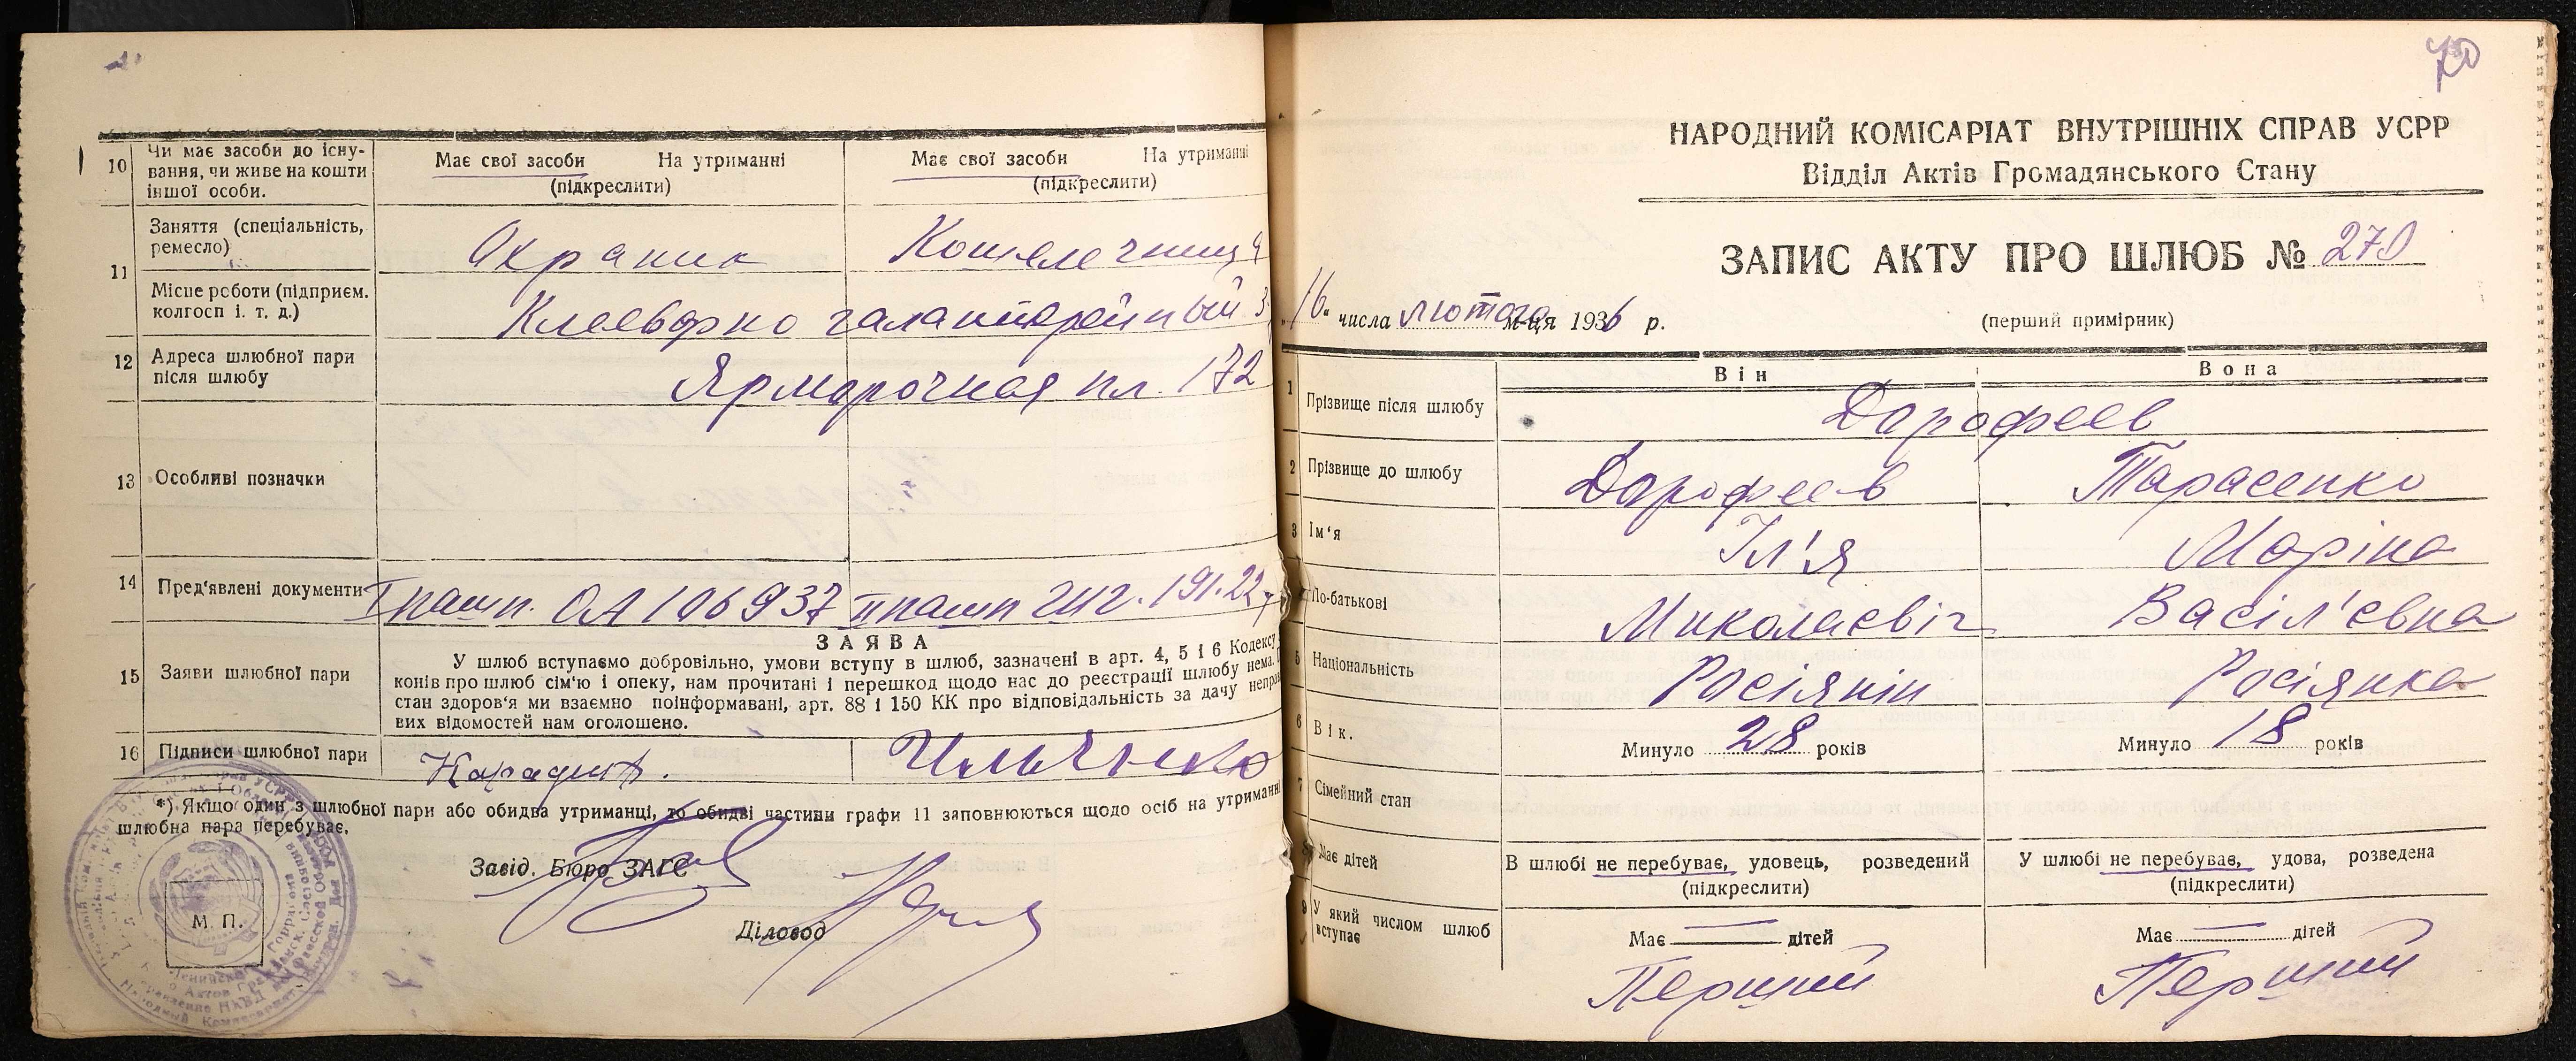 10 Чи має засоби до існу-
вання, чи живе на кошти
іншої особи.
Має свої засоби На утриманні
(підкреслити)
Має свої засоби На утриманні
(підкреслити)
11 Заняття (спеціальність,
ремесло)
Охраник
Місце роботи (підприєм.
колгосп і. т. д.)
галантерейный
12 Адреса шлюбної пари
після шлюбу
Ярмарочная пл. 172
13 Особливі позначки
14 Пред'явлені документи
I пашп. ОА 106937 II пашп
15 Заяви шлюбної пари
ЗАЯВА
У шлюб вступаємо добровільно, умови вступу в шлюб, зазначені в арт. 4, 5 і 6 Кодексу
конів про шлюб сім'ю і опеку, нам прочитані і перешкод щодо нас до реєстрації шлюбу нема.
стан здоров'я ми взаємно поінформавані, арт. 88 і 150 КК про відповідальність за дачу неправ
вих відомостей нам оголошено.
16 Підписи шлюбної пари
*) Якщо один з шлюбної пари або обидва утриманці, то обидві частини графи 11 заповнюються щодо осіб на утриманні
шлюбна пара перебуває.
Завід. Бюро ЗАГС
Діловод
М. П.
70
НАРОДНИЙ КОМІСАРІАТ ВНУТРІШНІХ СПРАВ УСРР
Відділ Актів Громадянського Стану
ЗАПИС АКТУ ПРО ШЛЮБ № 270
„16“ числа лютого м-ця 1936 р.
(перший примірник)
Він
Вона
1 Прізвище після шлюбу
Дарофеев
2 Прізвище до шлюбу
Дарофеев
Тарасенко
3 Ім'я
Іл'я
Маріна
По-батькові
Миколаєвіч
Васіл'євна
5 Національність
Росіянін
Росіянка
6 Вік.
Минуло 28 років
Минуло 18 років
7 Сімейний стан
В шлюбі не перебуває, удовець, розведений
(підкреслити)
У шлюбі не перебуває, удова, розведена
(підкреслити)
Має дітей
Має дітей
Має дітей
9 У який числом шлюб
вступає
Перший
Перший